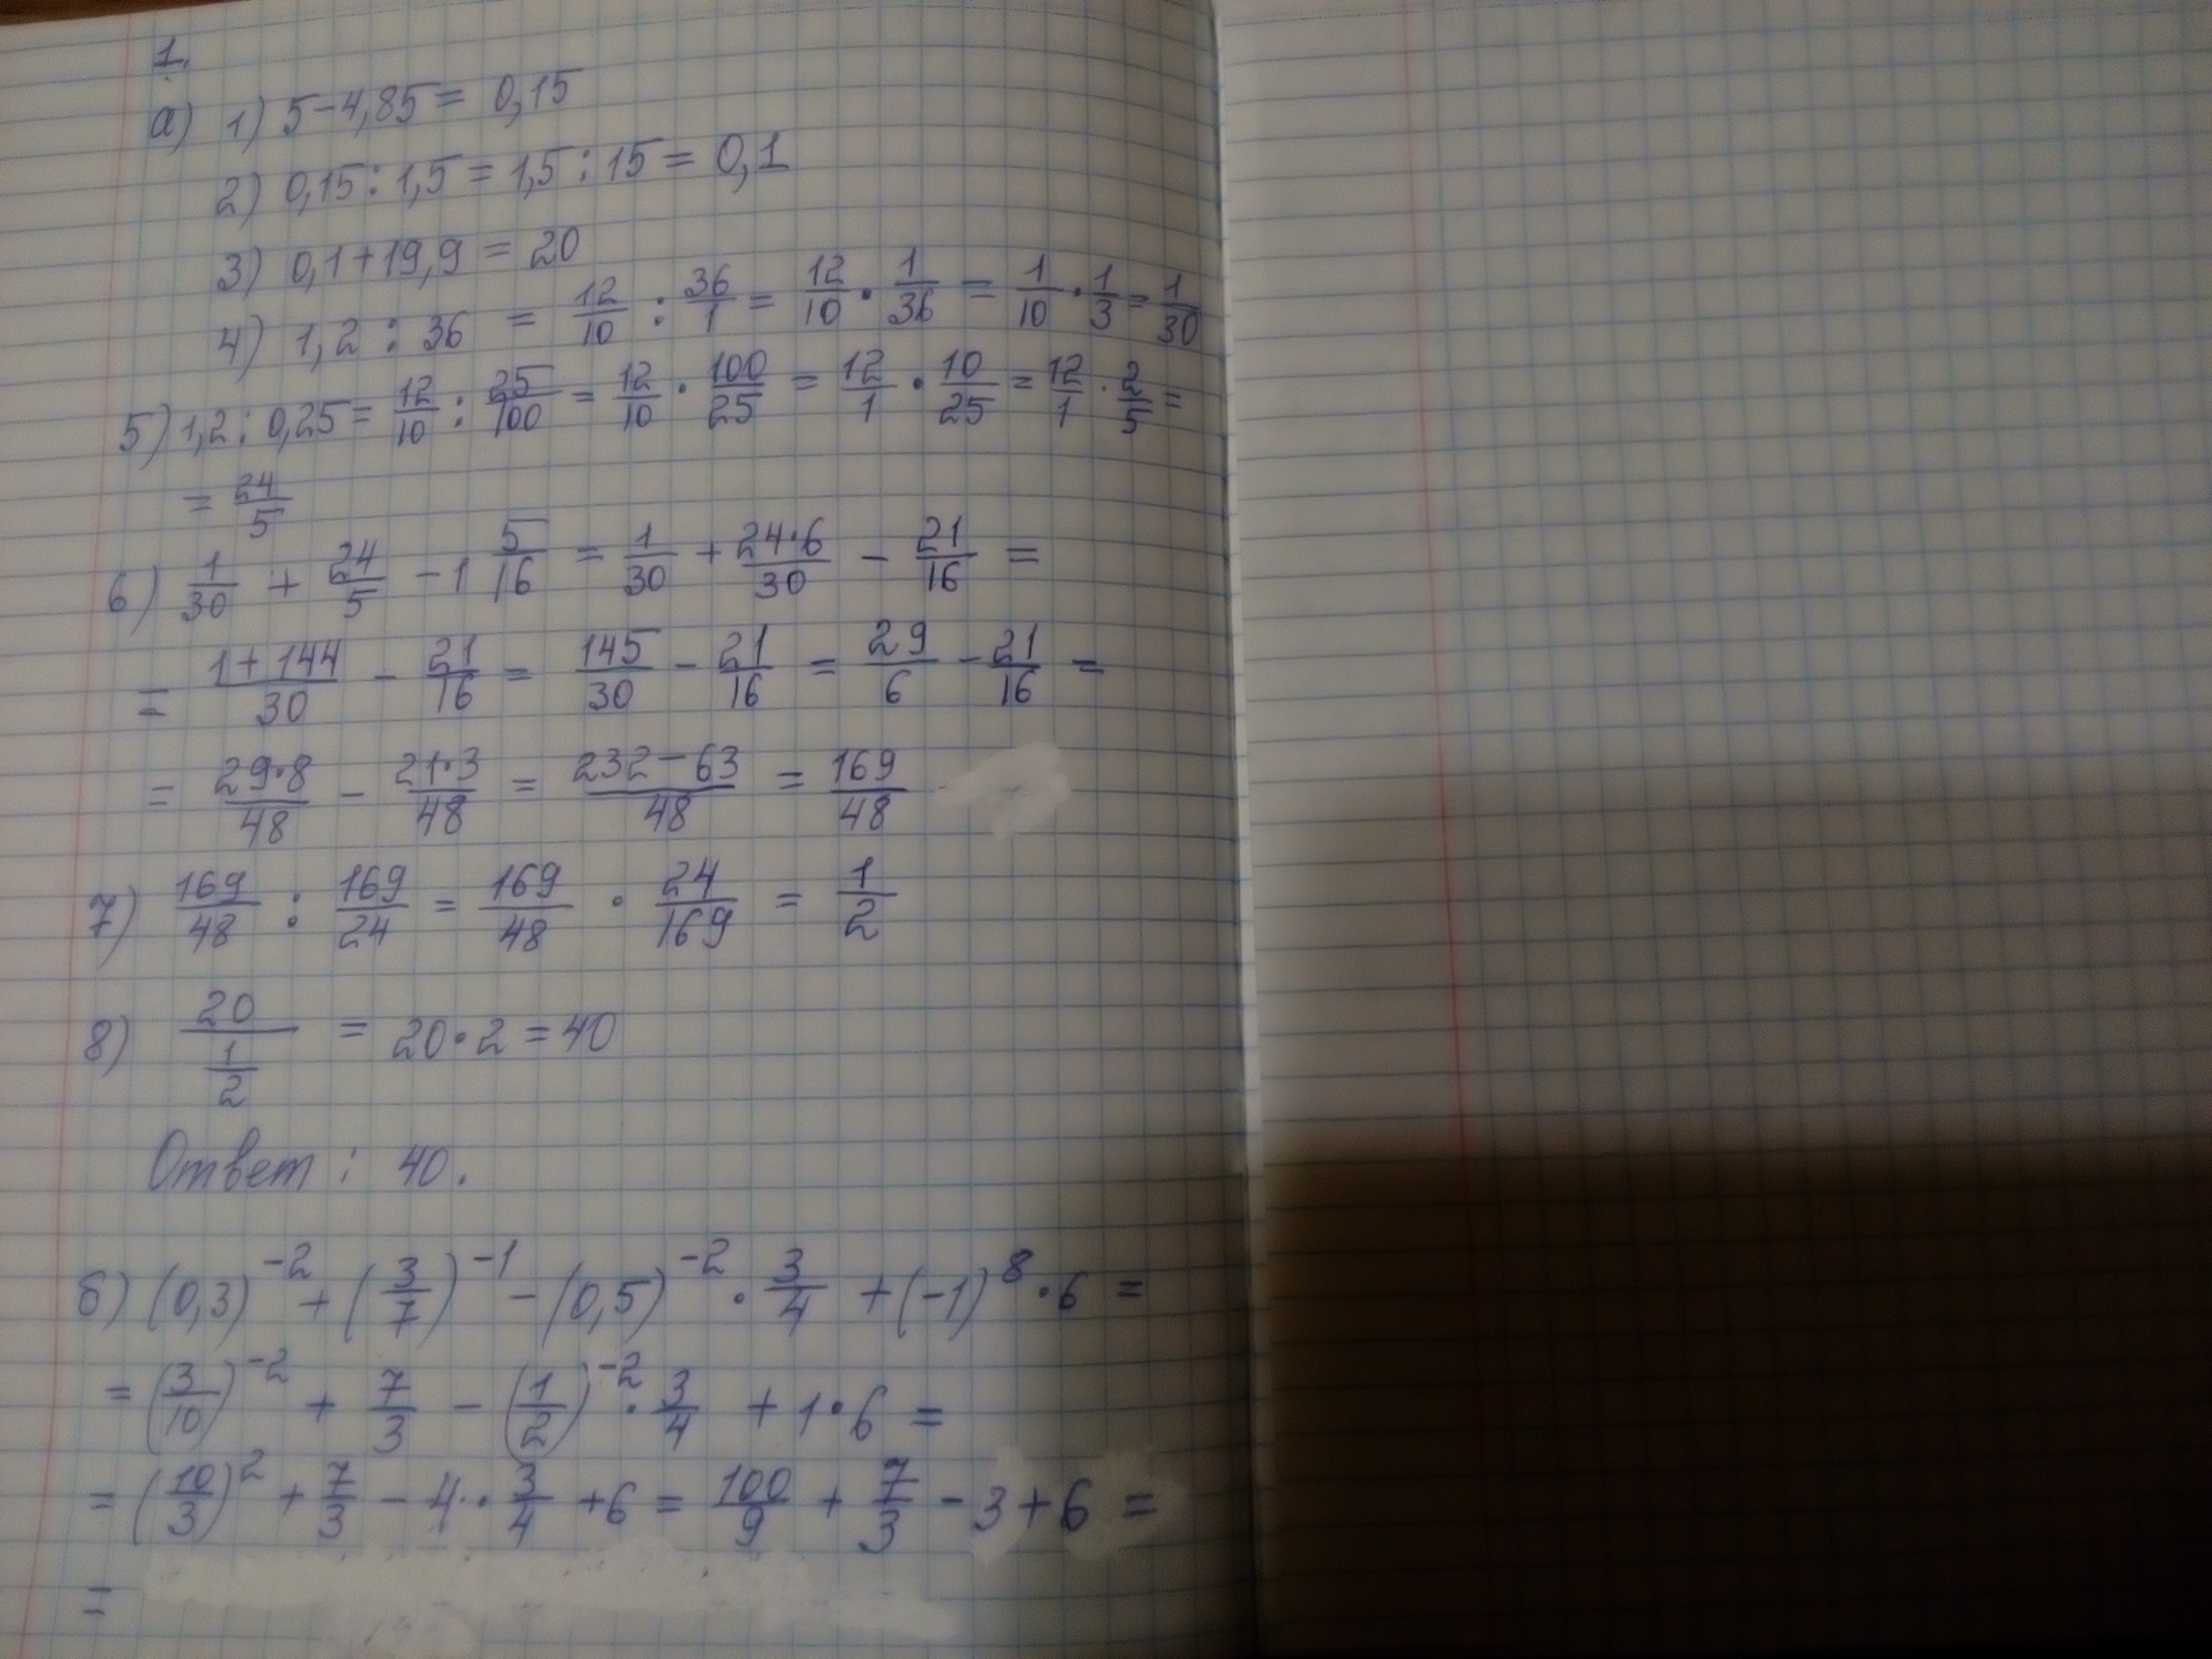 1.
а) 1) 5-4,85 = 0,15
2) 0,15 : 1,5 = 1,5 : 15 = 0,1
3) 0,1+19,9 = 20
4) 1,2 : 36 = 12/10 : 36/1 = 12/10 · 1/36 = 1/10 · 1/3 = 1/30
5) 1,2 : 0,25 = 12/10 : 25/100 = 12/10 · 100/25 = 12/1 · 10/25 = 12/1 · 2/5 =
= 24/5
6) 1/30 + 24/5 - 1 5/16 = 1/30 + 24·6/30 - 21/16 =
= 1+144/30 - 21/16 = 145/30 - 21/16 = 29/6 - 21/16 =
= 29·8/48 - 21·3/48 = 232-63/48 = 169/48
7) 169/48 : 169/24 = 169/48 · 24/169 = 1/2
8) 20/(1/2) = 20·2 = 40
Ответ : 40.
б) (0,3)^-2 + (3/7)^-1 - (0,5)^-2 · 3/4 + (-1)^8 · 6 =
= (3/10)^-2 + 7/3 - (1/2)^-2 · 3/4 + 1·6 =
= (10/3)^2 + 7/3 - 4 · 3/4 + 6 = 100/9 + 7/3 - 3 + 6 =
=